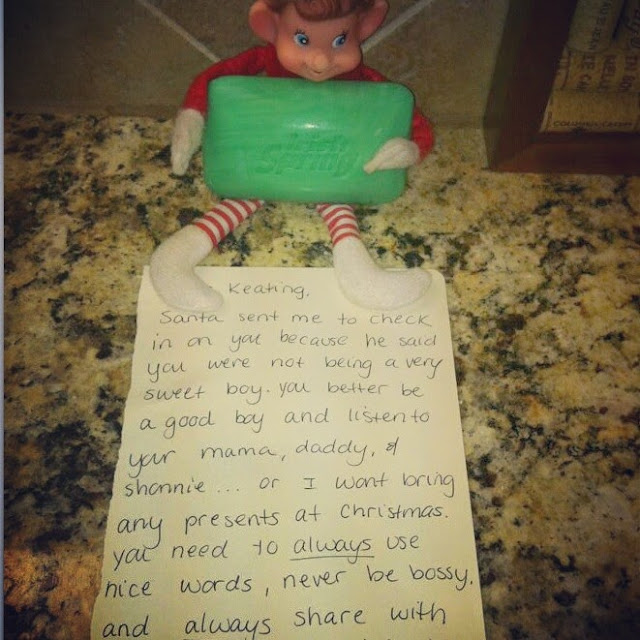 Irish
Spring
Keating,
Santa sent me to check
in on you because he said
you were not being a very
sweet boy. you better be
a good boy and listen to
your mama, daddy, &
shannie... or I wont bring
any presents at Christmas.
you need to always use
nice words, never be bossy,
and always share with